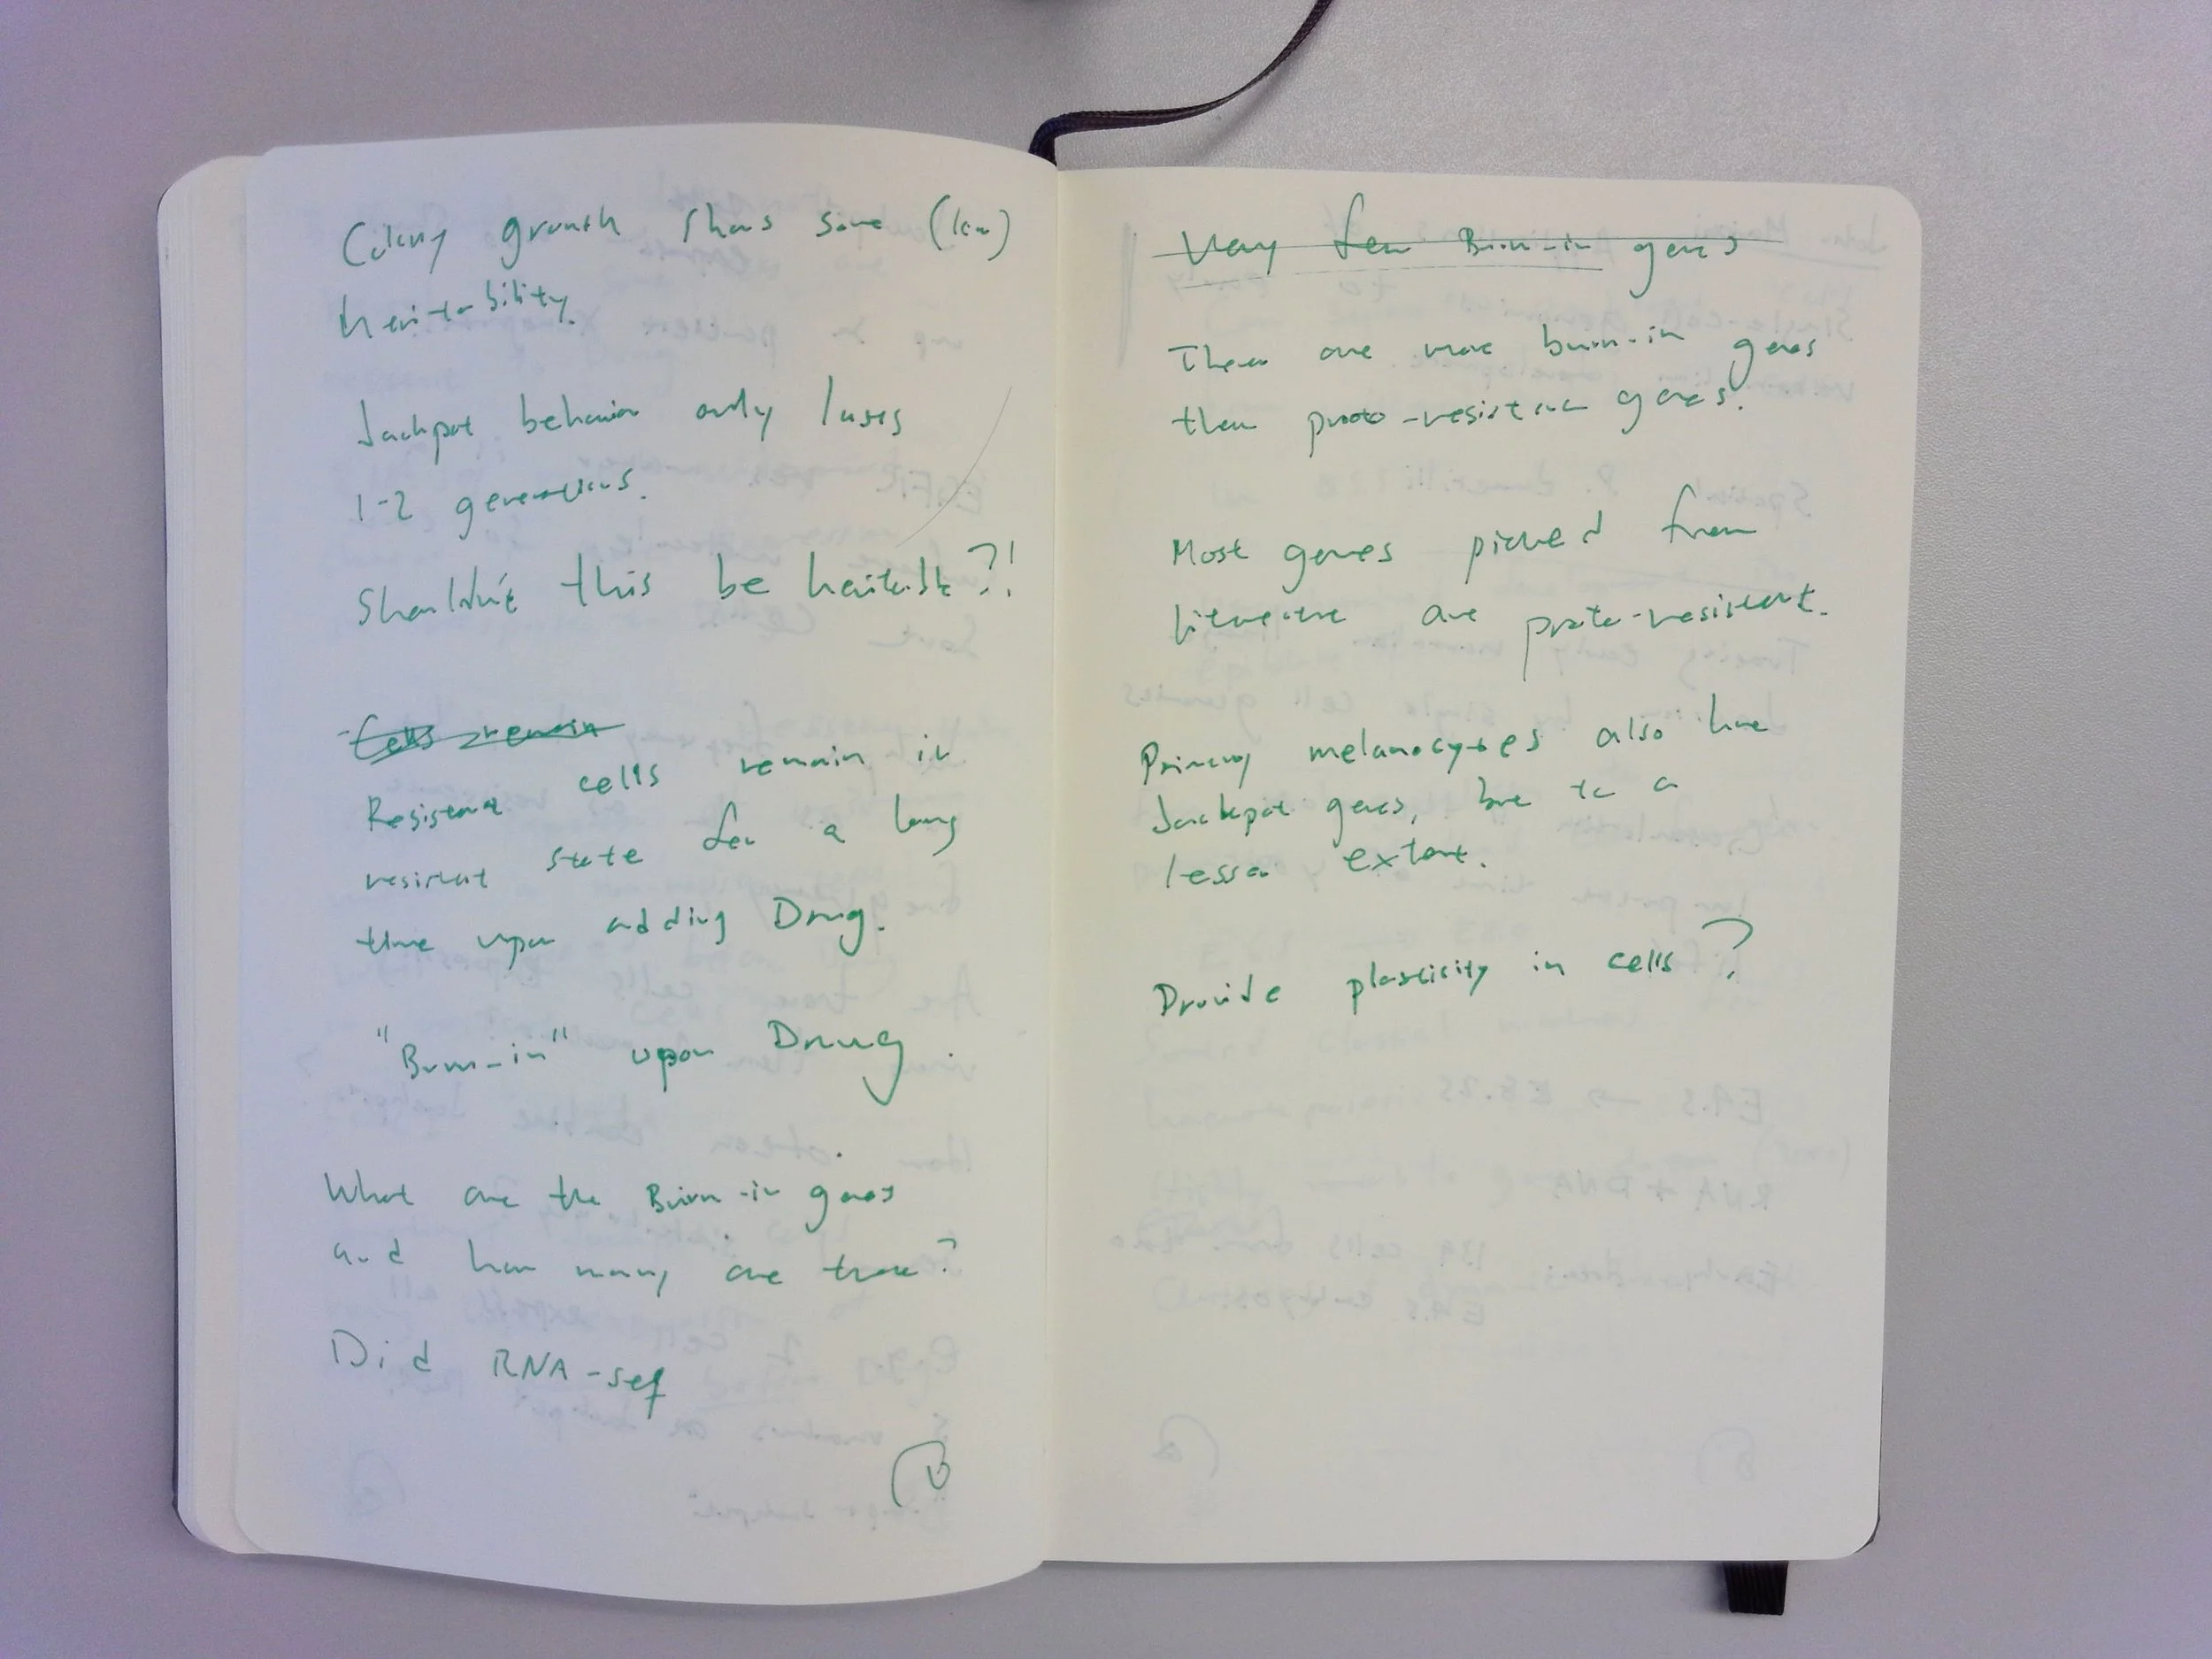 Colony growth shows some (low)
heritability.
Jackpot behavior only lasts
1-2 generations.
Shouldn't this be heritable?!
Cells remain
Resistant cells remain in
resistant state for a long
time upon adding Drug.
"Burn-in" upon Drug.
What are the Burn-in genes
and how many are there?
Did RNA-seq
Very few Burn-in genes
There are more burn-in genes
than proto-resistant genes.
Most genes picked from
literature are proto-resistant.
Primary melanocytes also have
Jackpot genes, but to a
lesser extent.
Provide plasticity in cells?